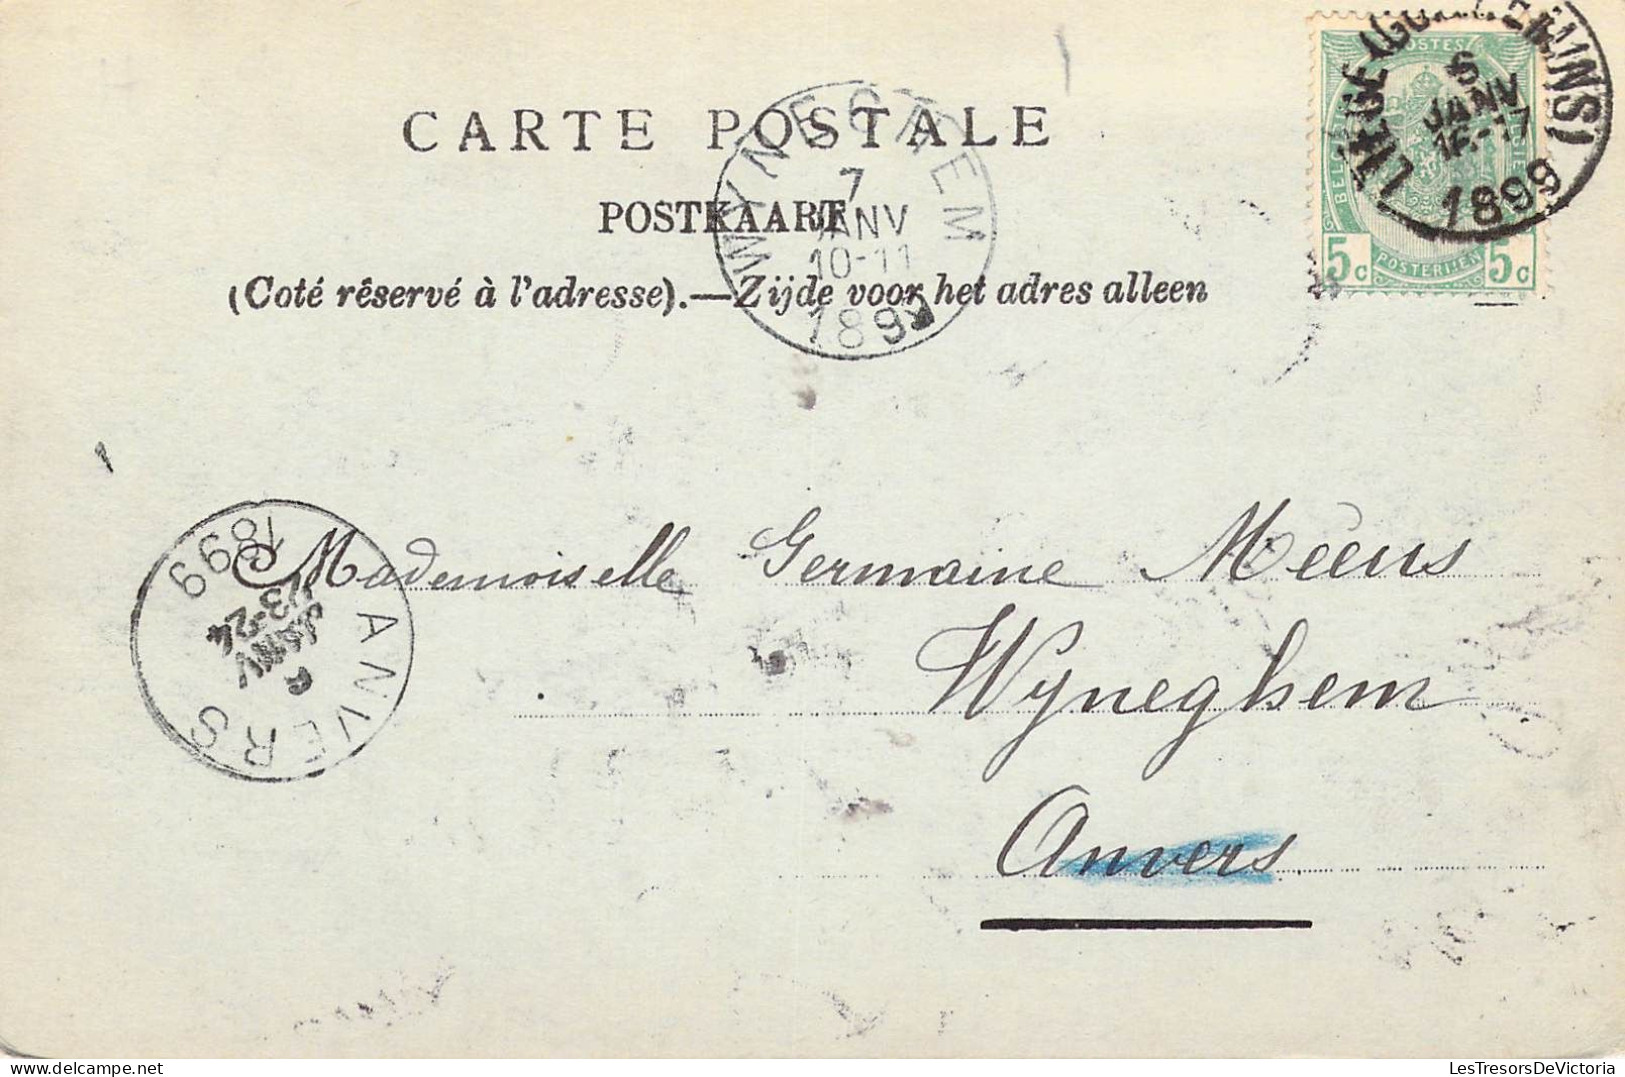 CARTE POSTALE
POSTKAART
(Coté réservé à l'adresse).—Zijde voor het adres alleen
WYNEGHEM
7
JANV
10-11
1899
LIEGE (GUILLEMINS)
6
JANV
16-17
1899
POSTES
5c POSTERIJEN 5c
1899
ANVERS
6
JANV
23-24
Mademoiselle Germaine Mèeùs
Wyneghem
Anvers
LesTresorsDeVictoria